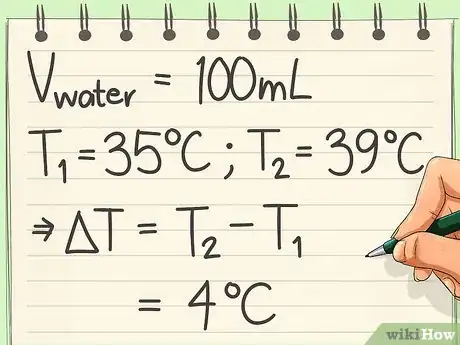 Vwater = 100mL
T1 = 35°C ; T2 = 39°C
⇒ ΔT = T2 − T1
= 4°C
wikiHow